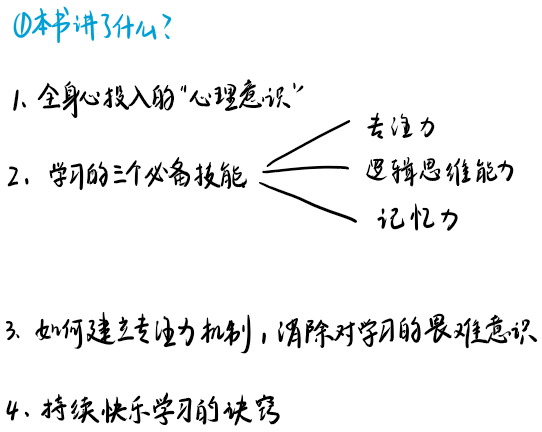 ①本书讲了什么？
1、全身心投入的“心理意识”
2、学习的三个必备技能
专注力
逻辑思维能力
记忆力
3、如何建立专注力机制，消除对学习的畏难意识
4、持续快乐学习的诀窍